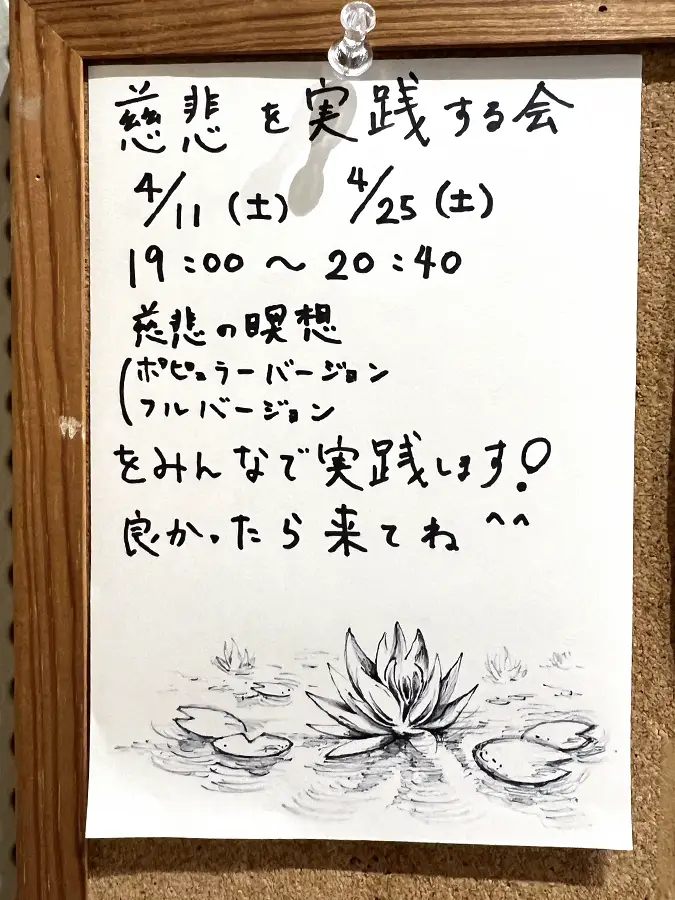 慈悲を実践する会
4/11(土) 4/25(土)
19:00〜20:40
慈悲の瞑想
(ポピュラーバージョン
フルバージョン
をみんなで実践します!
良かったら来てね^^